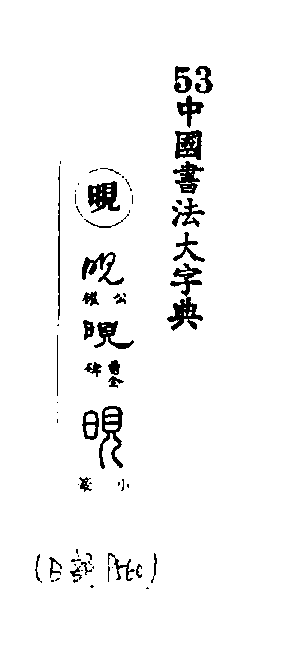 53
中國書法大字典
晛
晛
公權
晛
曹全碑
晛
小篆
(日部